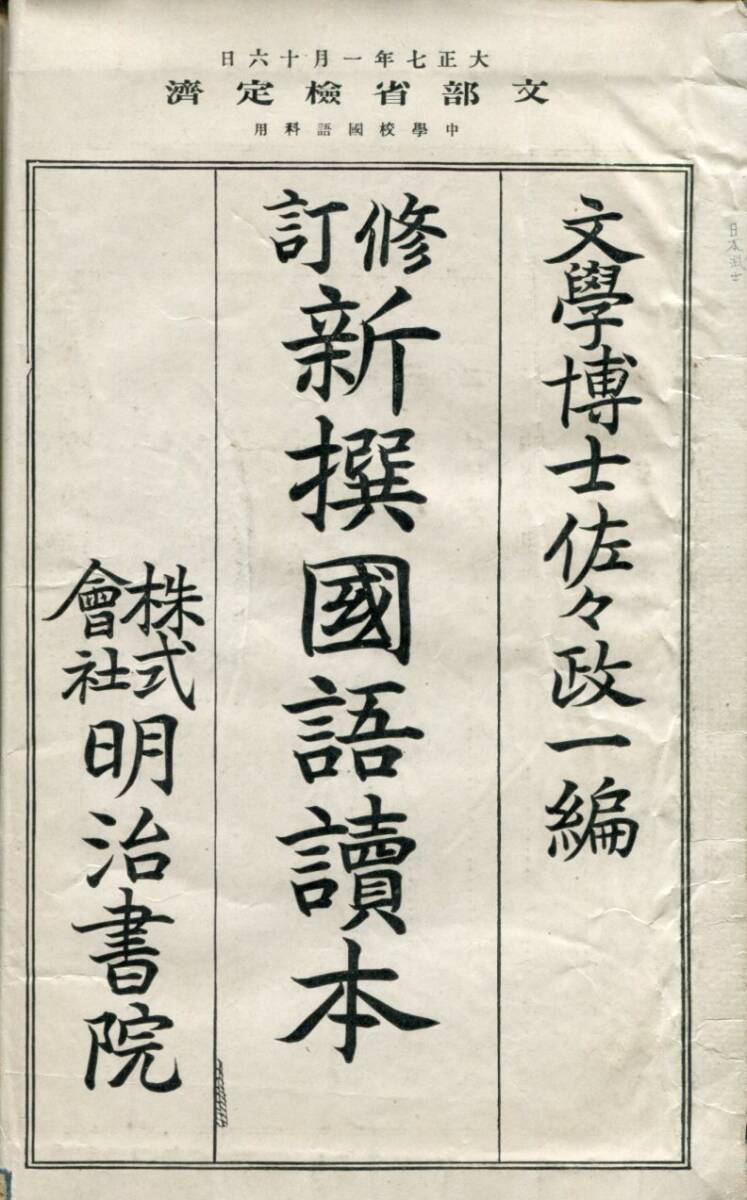 大正七年一月十六日
文部省檢定濟
中學校國語科用
文學博士佐々政一編
修訂新撰國語讀本
株式會社明治書院